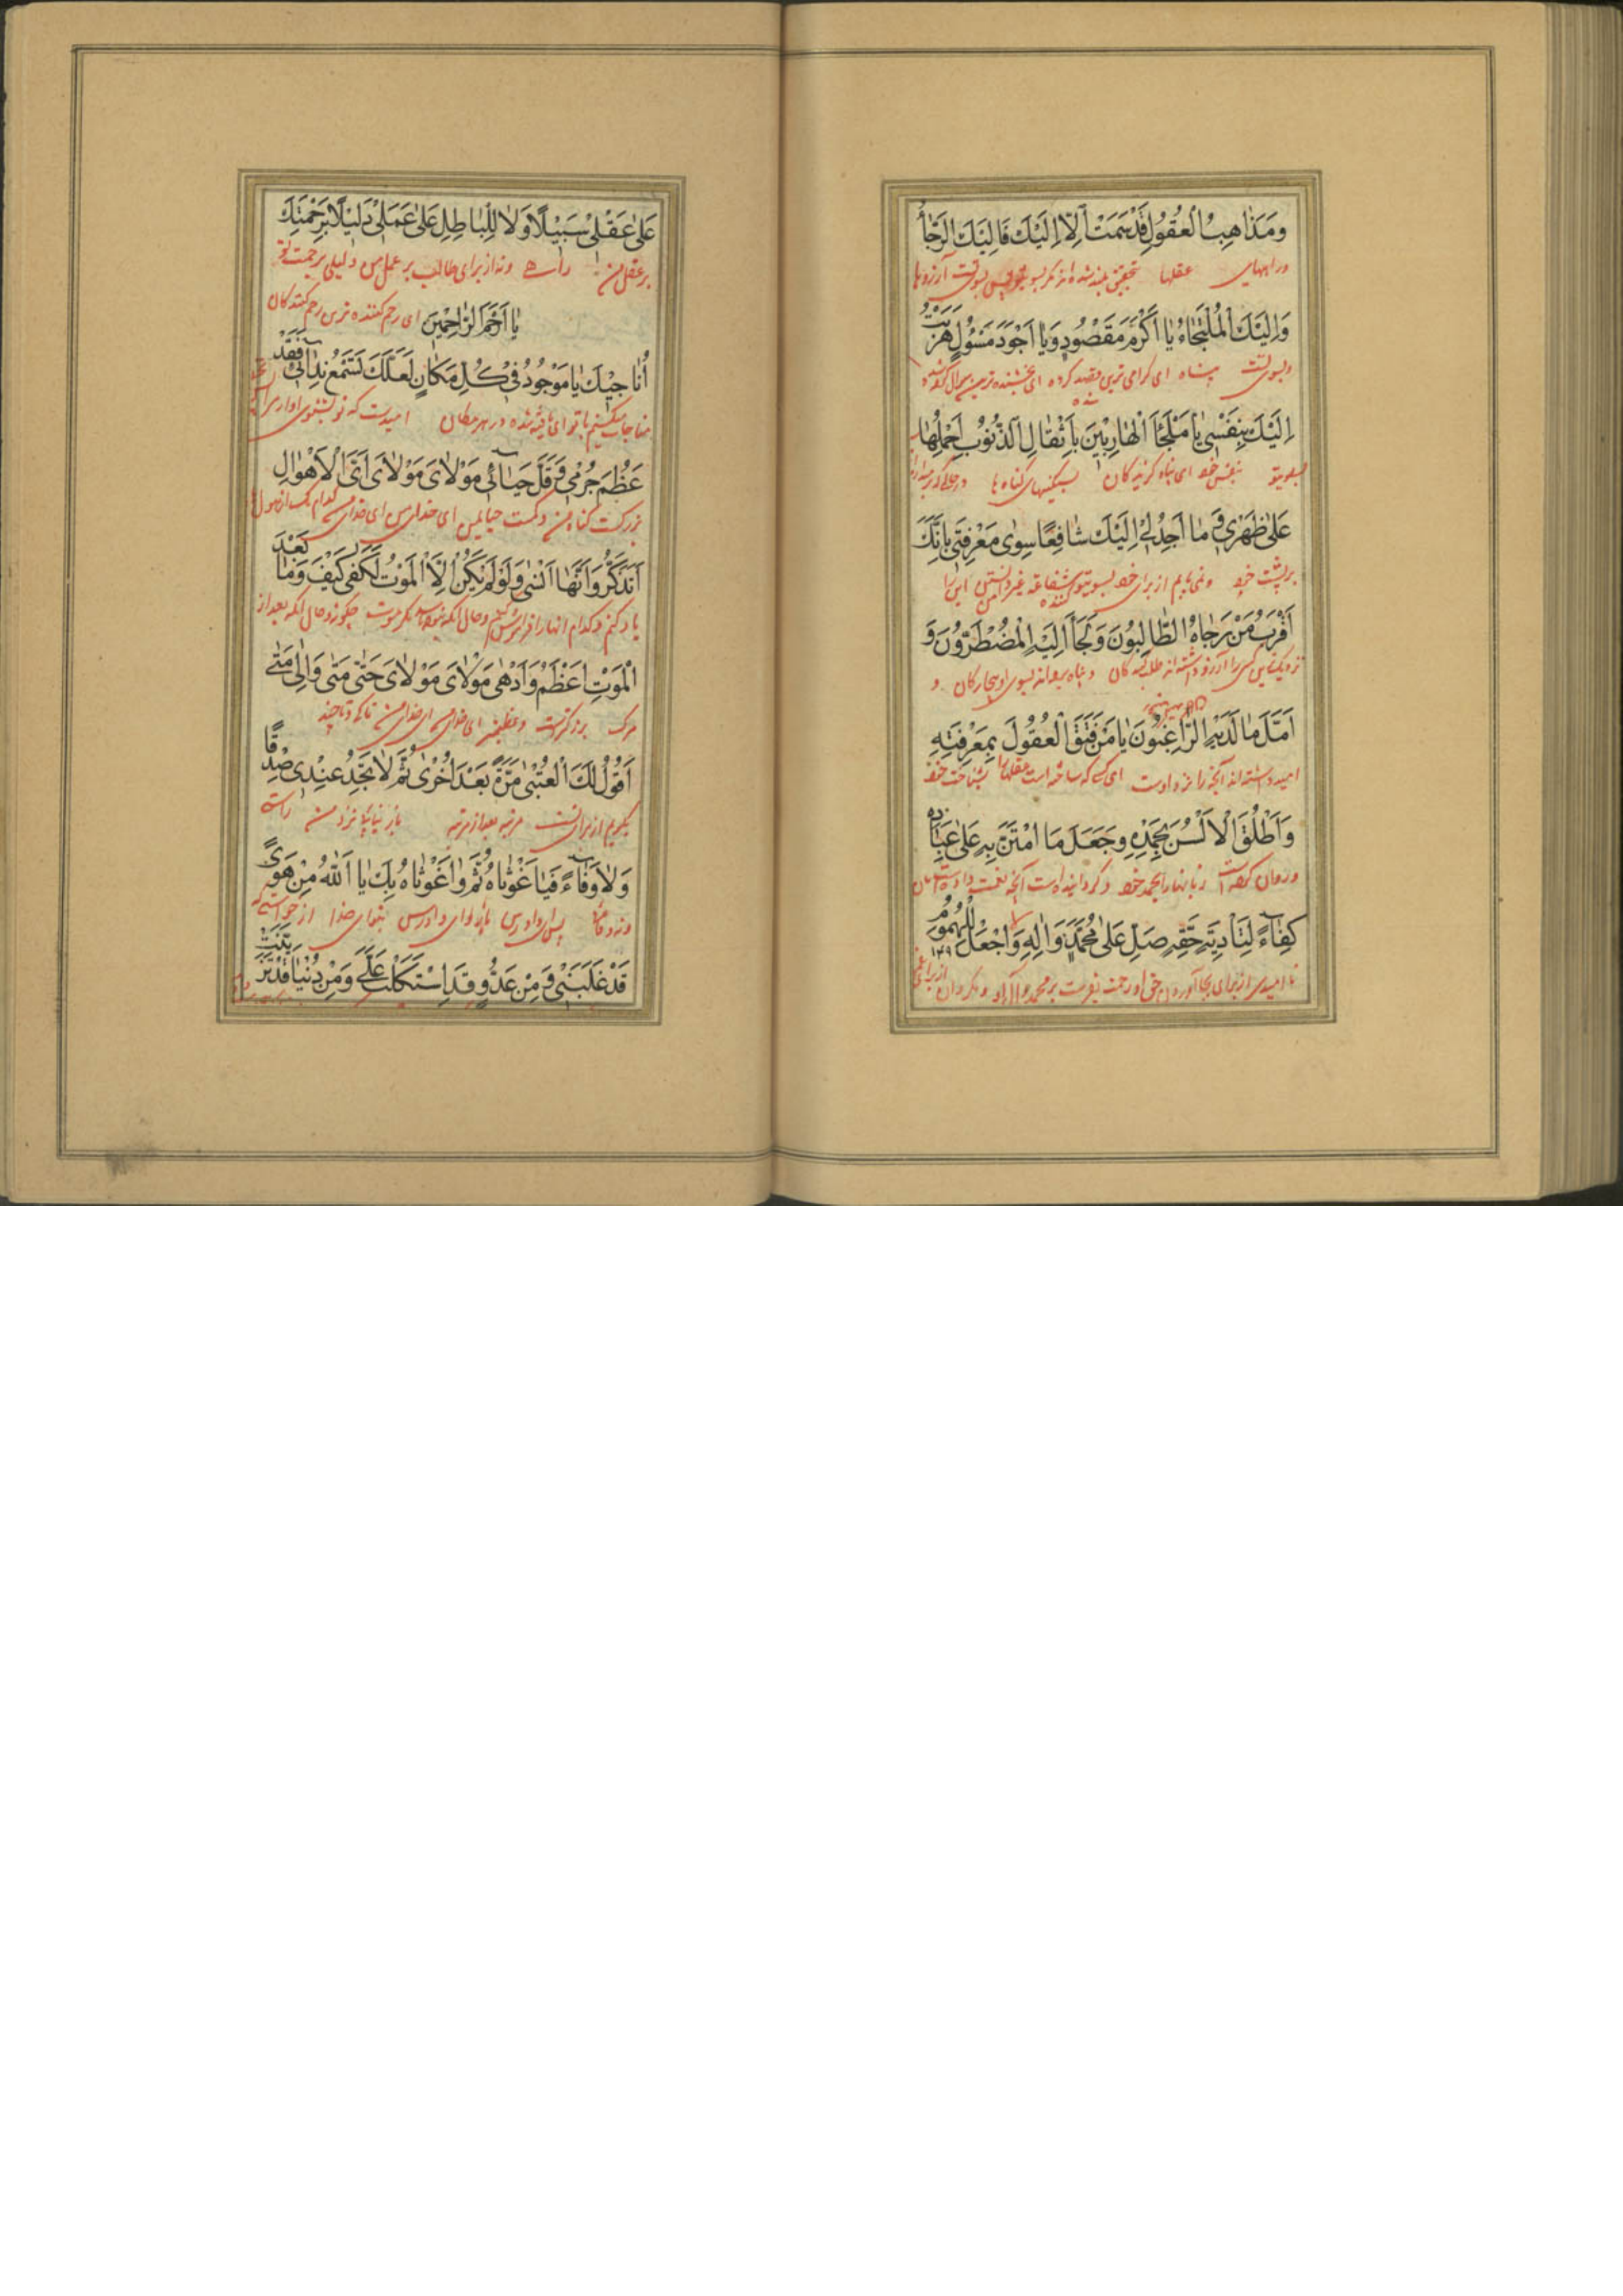 ومَذاهِبُ الْعُقُولِ قَدْ سَمَتْ اِلّا اِلَيْكَ فَاِلَيْكَ الرَّجاءُ
وراههای عقلها بتحقیق بلند شده‌اند مگر بسوی تو پس بسوی تست آرزوها
وَاِلَيْكَ الْمُلْتَجَاءُ يا اَكْرَمَ مَقْصُودٍ وَيا اَجْوَدَ مَسْؤُلٍ هَرَبْتُ
وبسوی تست پناه ای کرامی ترین قصد کرده شده ای بخشنده ترین سؤال کرده شده
اِلَيْكَ بِنَفْسى يا مَلْجَأَ الْهارِبينَ بِاَثْقالِ الذُّنُوبِ اَحْمِلُها
بسوی تو بنفس خود ای پناه گریزندکان بسنگینیهای گناه ها
عَلى ظَهْرى وَما اَجِدُ لى اِلَيْكَ شافِعًا سِوى مَعْرِفَتى بِاَنَّكَ
بر پشت خود ونمی یابم از برای خود بسوی تو شفاعت کننده غیر دانستن من این را
اَقْرَبُ مَنْ رَجاهُ الطّالِبُونَ وَلَجَأَ اِلَيْهِ الْمُضْطَرُّونَ وَ
نزدیکترین کسی را آرزو داشته‌اند طلب کنندکان وپناه برده‌اند بسوی او بیچارکان و
اَمَّلَ ما لَدَيْهِ الرّاغِبُونَ يا مَنْ فَتَقَ الْعُقُولَ بِمَعْرِفَتِهِ
امید داشته‌اند آنچه را نزد اوست ای کسی که شکافته است عقلها را بشناخت خود
وَاَطْلَقَ الْاَلْسُنَ بِحَمْدِهِ وَجَعَلَ مَا امْتَنَّ بِهِ عَلى عِبادِهِ
وروان کرده است زبانها را بحمد خود وگردانیده است آنچه نعمت داده است بآن
كِفاءً لِتَأْدِيَةِ حَقِّهِ صَلِّ عَلى مُحَمَّدٍ وَالِهِ وَاجْعَلْ لِلْهُمُومِ
از برای بجا آوردن حق او رحمت بفرست بر محمد وآل او ومگردان از برای
عَلى عَقْلى سَبيلًا وَلا لِلْباطِلِ عَلى عَمَلى دَليلًا بِرَحْمَتِكَ
بر عقل من راهی ونه از برای باطل بر عمل من دلیلی برحمت تو
يا اَرْحَمَ الرّاحِمينَ ای رحم کننده ترین رحم کنندکان
اُناجيكَ يا مَوْجُودُ فى كُلِّ مَكانٍ لَعَلَّكَ تَسْمَعُ نِدائى فَقَدْ
مناجات میکنم با تو ای یافته شده در هر مکان امید است که تو بشنوی آواز مرا
عَظُمَ جُرْمى وَقَلَّ حَيائى مَوْلاىَ مَوْلاىَ اَىَّ الْاَهْوالِ
بزرک است کناه من وکمست حیای من ای خدای من ای خدای من کدام یک از هولها
اَتَذَكَّرُ وَاَيَّها اَنْسى وَلَوْ لَمْ يَكُنْ اِلَّا الْمَوْتُ لَكَفى كَيْفَ وَما بَعْدَ
یاد کنم وکدام آنها را فراموش کنم وحال آنکه مگر موت چگونه وحال آنکه بعد از
الْمَوْتِ اَعْظَمُ وَاَدْهى مَوْلاىَ مَوْلاىَ حَتّى مَتى وَاِلى مَتى
مرک بزرگترست وعظیمتر ای خدای من ای خدای من تا کی وتا چند
اَقُولُ لَكَ الْعُتْبى مَرَّةً بَعْدَ اُخْرى ثُمَّ لا تَجِدُ عِنْدى صِدْقًا
بگویم از برای تست مرتبه بعد از مرتبه باز نیابی نزد من راستی
وَلا وَفاءً فَيا غَوْثاهُ ثُمَّ واغَوْثاهُ بِكَ يا اَللّهُ مِنْ هَوًى
ونه وفا پس ای دادرس باز ای دادرس بتو ای خدا از خواهشی که
قَدْ غَلَبَنى وَمِنْ عَدُوٍّ قَدِ اسْتَكْلَبَ عَلَىَّ وَمِنْ دُنْيا قَدْ تَزَيَّنَتْ